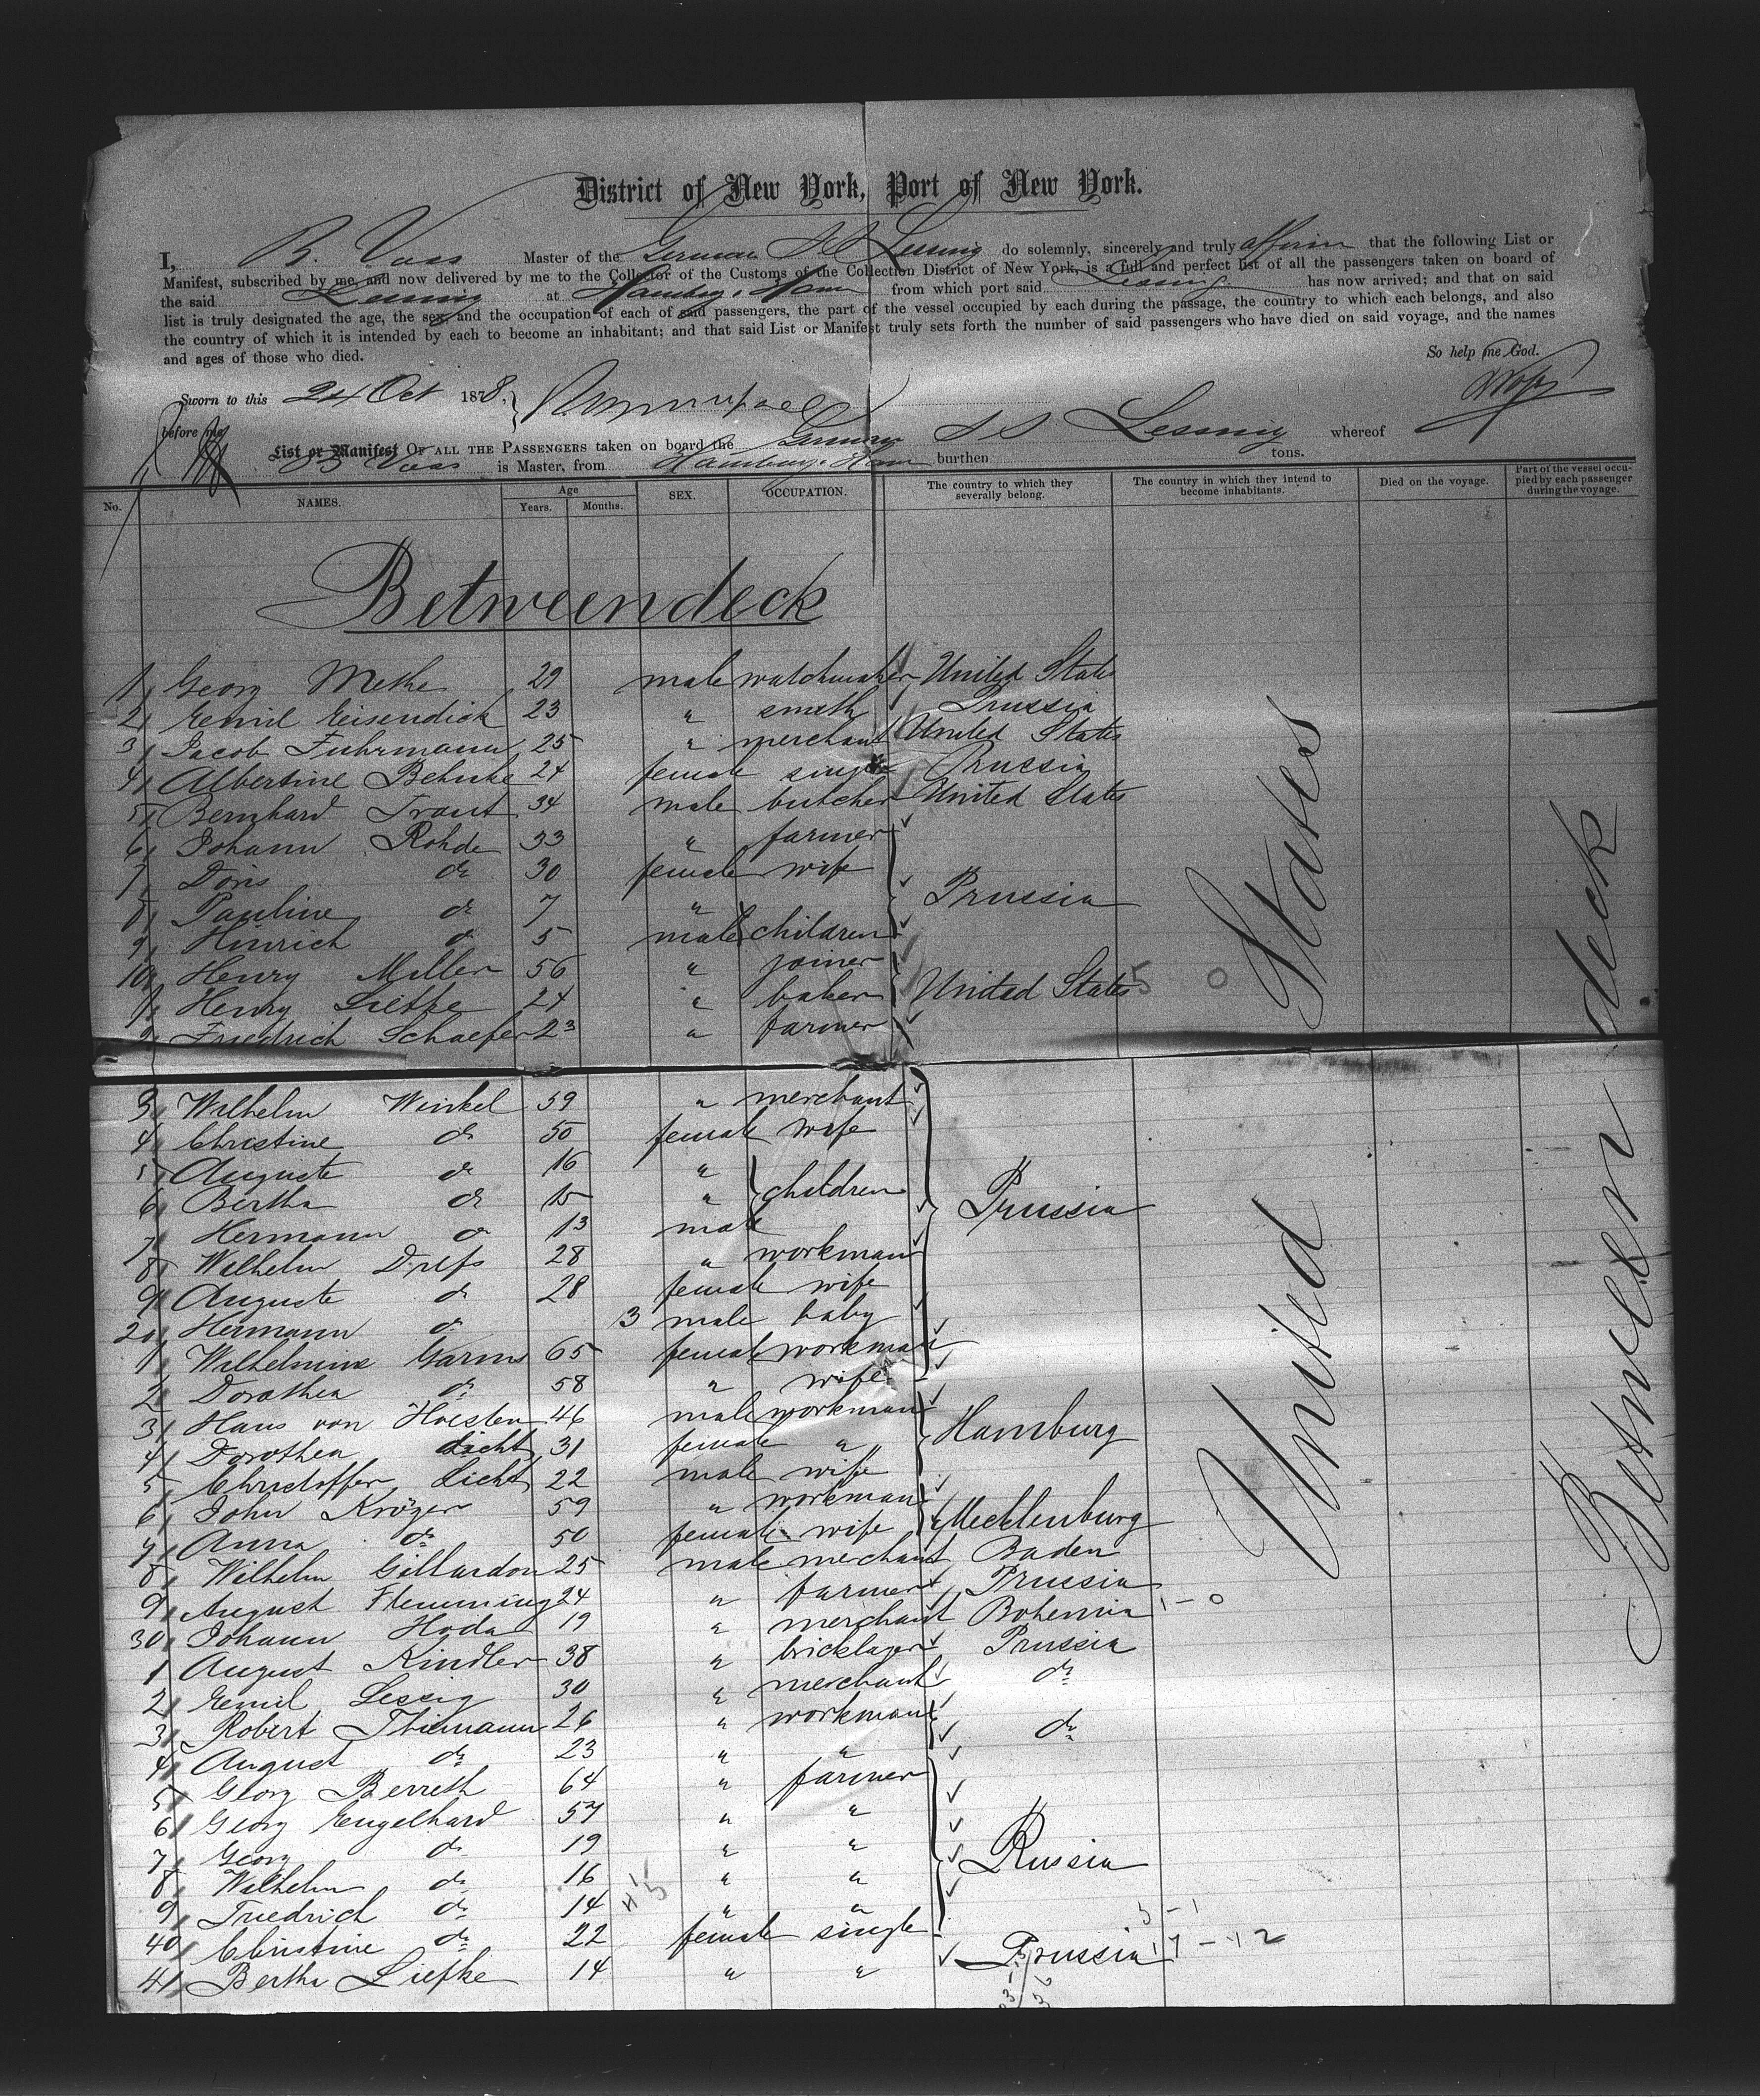 District of New York, Port of New York.
I, B. Voss Master of the German SS Lessing do solemnly, sincerely and truly affirm that the following List or
Manifest, subscribed by me, and now delivered by me to the Collector of the Customs of the Collection District of New York, is a full and perfect list of all the passengers taken on board of
the said Lessing at Hamburg & Havre from which port said Lessing has now arrived; and that on said
list is truly designated the age, the sex, and the occupation of each of said passengers, the part of the vessel occupied by each during the passage, the country to which each belongs, and also
the country of which it is intended by each to become an inhabitant; and that said List or Manifest truly sets forth the number of said passengers who have died on said voyage, and the names
and ages of those who died. So help me God.
Sworn to this 24 Oct 1878,
before me
List or Manifest OF ALL THE PASSENGERS taken on board the German SS Lessing whereof
B Voss is Master, from Hamburg & Havre burthen tons.
No. NAMES. Age Years. Months. SEX. OCCUPATION. The country to which they severally belong. The country in which they intend to become inhabitants. Died on the voyage. Part of the vessel occupied by each passenger during the voyage.
Betweendeck
1 Georg Methe 29 male watchmaker United States
2 Emil Eisendick 23 " smith Prussia
3 Jacob Fuhrmann 25 " merchant United States
4 Albertine Behnke 24 female single Prussia
5 Bernhard Traut 34 male butcher United States
6 Johann Rohde 33 " farmer
7 Doris do 30 female wife
8 Pauline do 7 " Prussia
9 Hinrich do 5 male children
10 Henry Miller 56 " joiner
1 Henry Liefke 24 " baker United States
2 Friedrich Schaefer 23 " farmer
3 Wilhelm Winkel 59 " merchant
4 Christine do 50 female wife
5 Auguste do 16 "
6 Bertha do 15 " children Prussia
7 Hermann do 13 male
8 Wilhelm Drefs 28 " workman
9 Auguste do 28 female wife
20 Hermann do 3 male baby
1 Wilhelmine Garms 65 female workman
2 Dorothea do 58 " wife
3 Hans von Holsten 46 male workman Hamburg
4 Dorothea Licht 31 female "
5 Christoffer Licht 22 male wife
6 John Kröger 59 " workman
7 Anna do 50 female wife Mecklenburg
8 Wilhelm Gillardon 25 male merchant Baden
9 August Flemming 24 " farmer Prussia
30 Johann Hoda 19 " merchant Bohemia
1 August Kindler 38 " bricklayer Prussia
2 Emil Lessig 30 " merchant do
3 Robert Thiemann 26 " workman
4 August do 23 " " do
5 Georg Berreth 64 " farmer
6 Georg Engelhard 57 " "
7 Georg do 19 " " Russia
8 Wilhelm do 16 " "
9 Friedrich do 14 " "
40 Christine do 22 female single
41 Bertha Liefke 14 " " Prussia
United States
Between deck